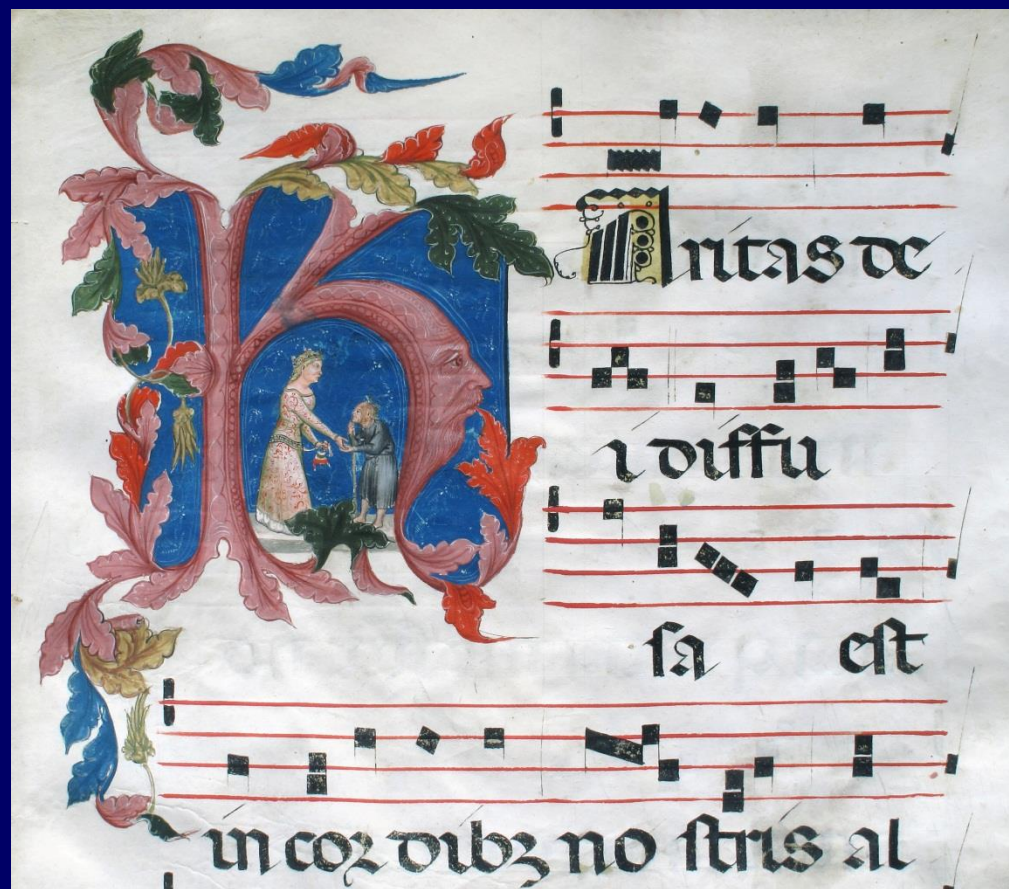 KAritas de
i diffu
sa est
in cor dibz no stris al